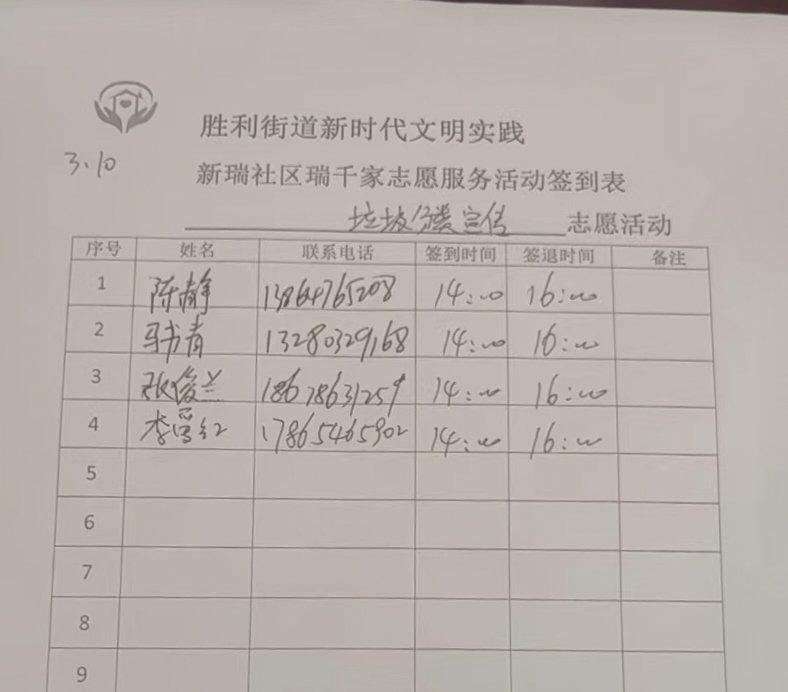 胜利街道新时代文明实践
3.10
新瑞社区瑞千家志愿服务活动签到表
垃圾分类宣传 志愿活动
序号 姓名 联系电话 签到时间 签退时间 备注
1 陈静 13864765208 14:00 16:00
2 马书青 13280329168 14:00 16:00
3 张俊兰 18678631259 14:00 16:00
4 李 红 17865465902 14:00 16:00
5
6
7
8
9